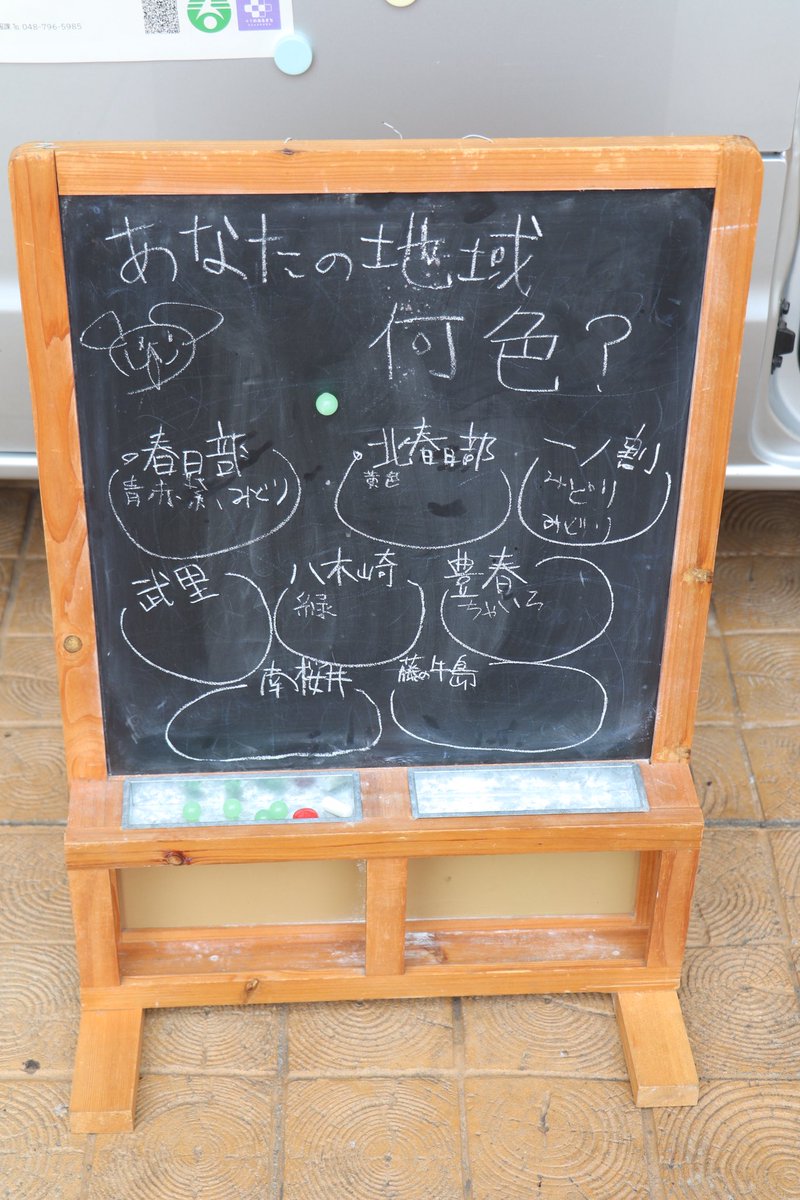 048-796-5985
あなたの地域
何色?
春日部
青 赤 紫 みどり
北春日部
黄色
一ノ割
みどり
みどり
武里
八木崎
緑
豊春
ちゃいろ
南桜井
藤の牛島